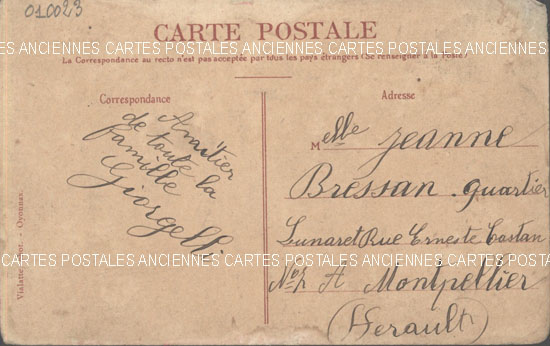 010023
CARTE POSTALE
CARTES POSTALES ANCIENNES CARTES POSTALES ANCIENNES CARTES POSTALES ANCIENNES
La Correspondance au recto n'est pas acceptée par tous les pays étrangers (Se renseigner à la Poste)
Correspondance
Amitier
de toute la
famille
Giorgelli
Adresse
Melle Jeanne
Bressan quartier
Lunaret Rue Erneste Castan
A Montpellier
(Herault)
Oyonnax.
CARTES POSTALES ANCIENNES CARTES POSTALES ANCIENNES CARTES POSTALES ANCIENNES